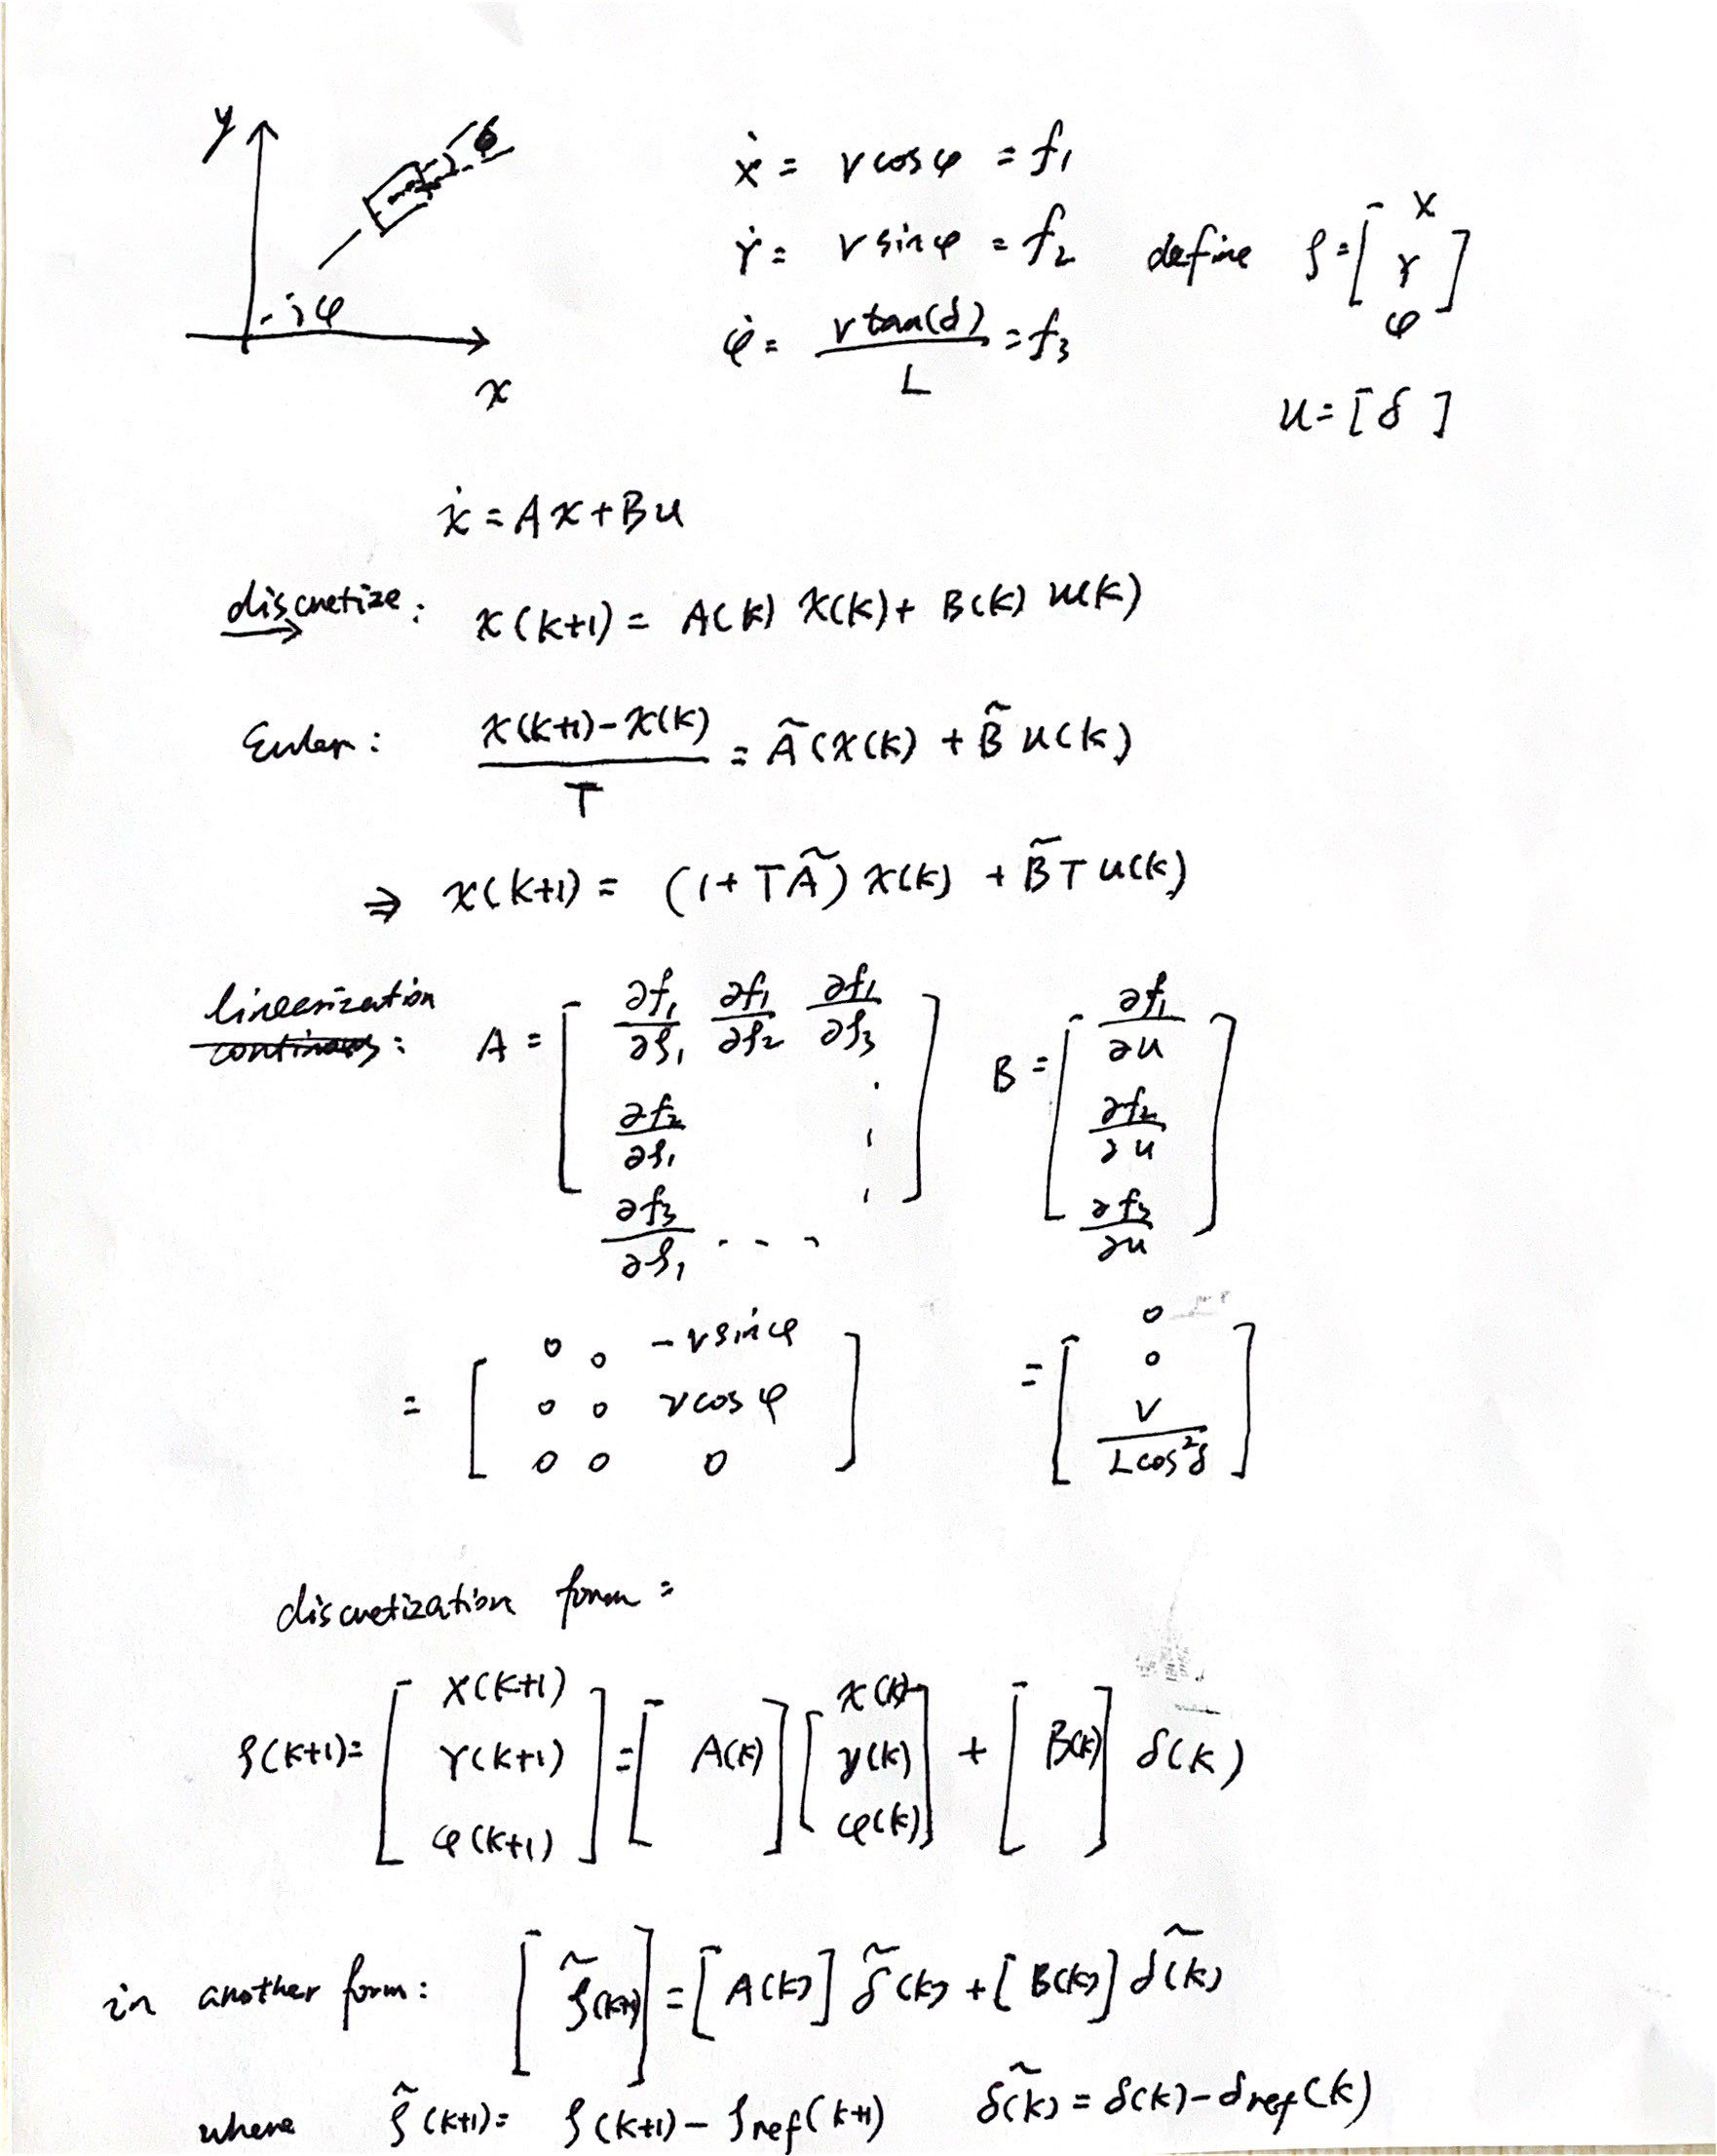 y δ
φ
x
ẋ = v cosφ = f₁
Ẏ = v sinφ = f₂ define ξ = [X Y φ]
φ̇ = v tan(δ) / L = f₃
u = [δ]
ẋ = Ax + Bu
discretize: x(k+1) = A(k) x(k) + B(k) u(k)
Euler: x(k+1) - x(k) / T = Ã(x(k) + B̃ u(k)
⇒ x(k+1) = (1 + TÃ) x(k) + B̃T u(k)
linearization
continous: A = [∂f₁/∂ξ₁ ∂f₁/∂ξ₂ ∂f₁/∂ξ₃ B = [∂f₁/∂u
∂f₂/∂ξ₁ ⋮ ∂f₂/∂u
∂f₃/∂ξ₁ ...] ∂f₃/∂u]
= [0 0 -v sinφ = [0
0 0 v cosφ 0
0 0 0] v / L cos²δ]
discretization form:
ξ(k+1) = [X(k+1) Y(k+1) φ(k+1)] = [A(k)] [x(k) y(k) φ(k)] + [B(k)] δ(k)
in another form: [ξ̃(k+1)] = [A(k)] ξ̃(k) + [B(k)] δ̃(k)
where ξ̃(k+1) = ξ(k+1) - ξref(k+1) δ̃(k) = δ(k) - δref(k)